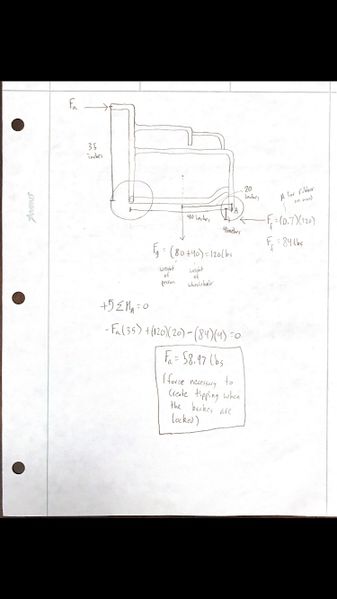 Fa
35
inches
20
inches
40 inches
A
4 inches
μ for rubber
on wood
Ff = (0.7)(120)
Ff = 84 lbs
Fg = (80+40) = 120 lbs
weight of person
weight of wheelchair
+↺ ΣM_A = 0
-Fa(35) + (120)(20) - (84)(4) = 0
Fa = 58.97 lbs
(force necessary to
create tipping when
the brakes are
locked)